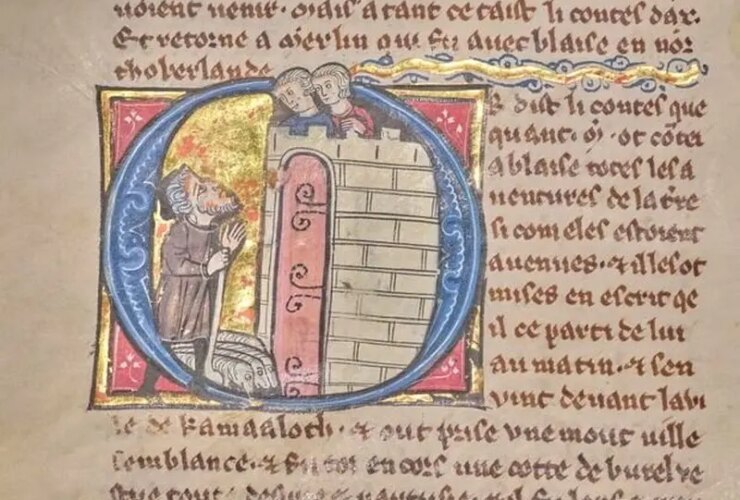 uoient uenir. Mais a tant ce taist li contes dax.
Et retorne a Merlin qui fu auec blaise en nor
thoberlande
R dist li contes que
quant. M. ot co̅te
a blaise totes les a
uentures de la t're
si com eles estoient
auenues. ⁊ il les ot
mises en escrit qe
il ce parti de lui
au matin. ⁊ sen
vint deuant la vi
le de Kamaaloth. ⁊ out prise vne mout uille
semblance. ⁊ fu toz encors une cotte de burel ve